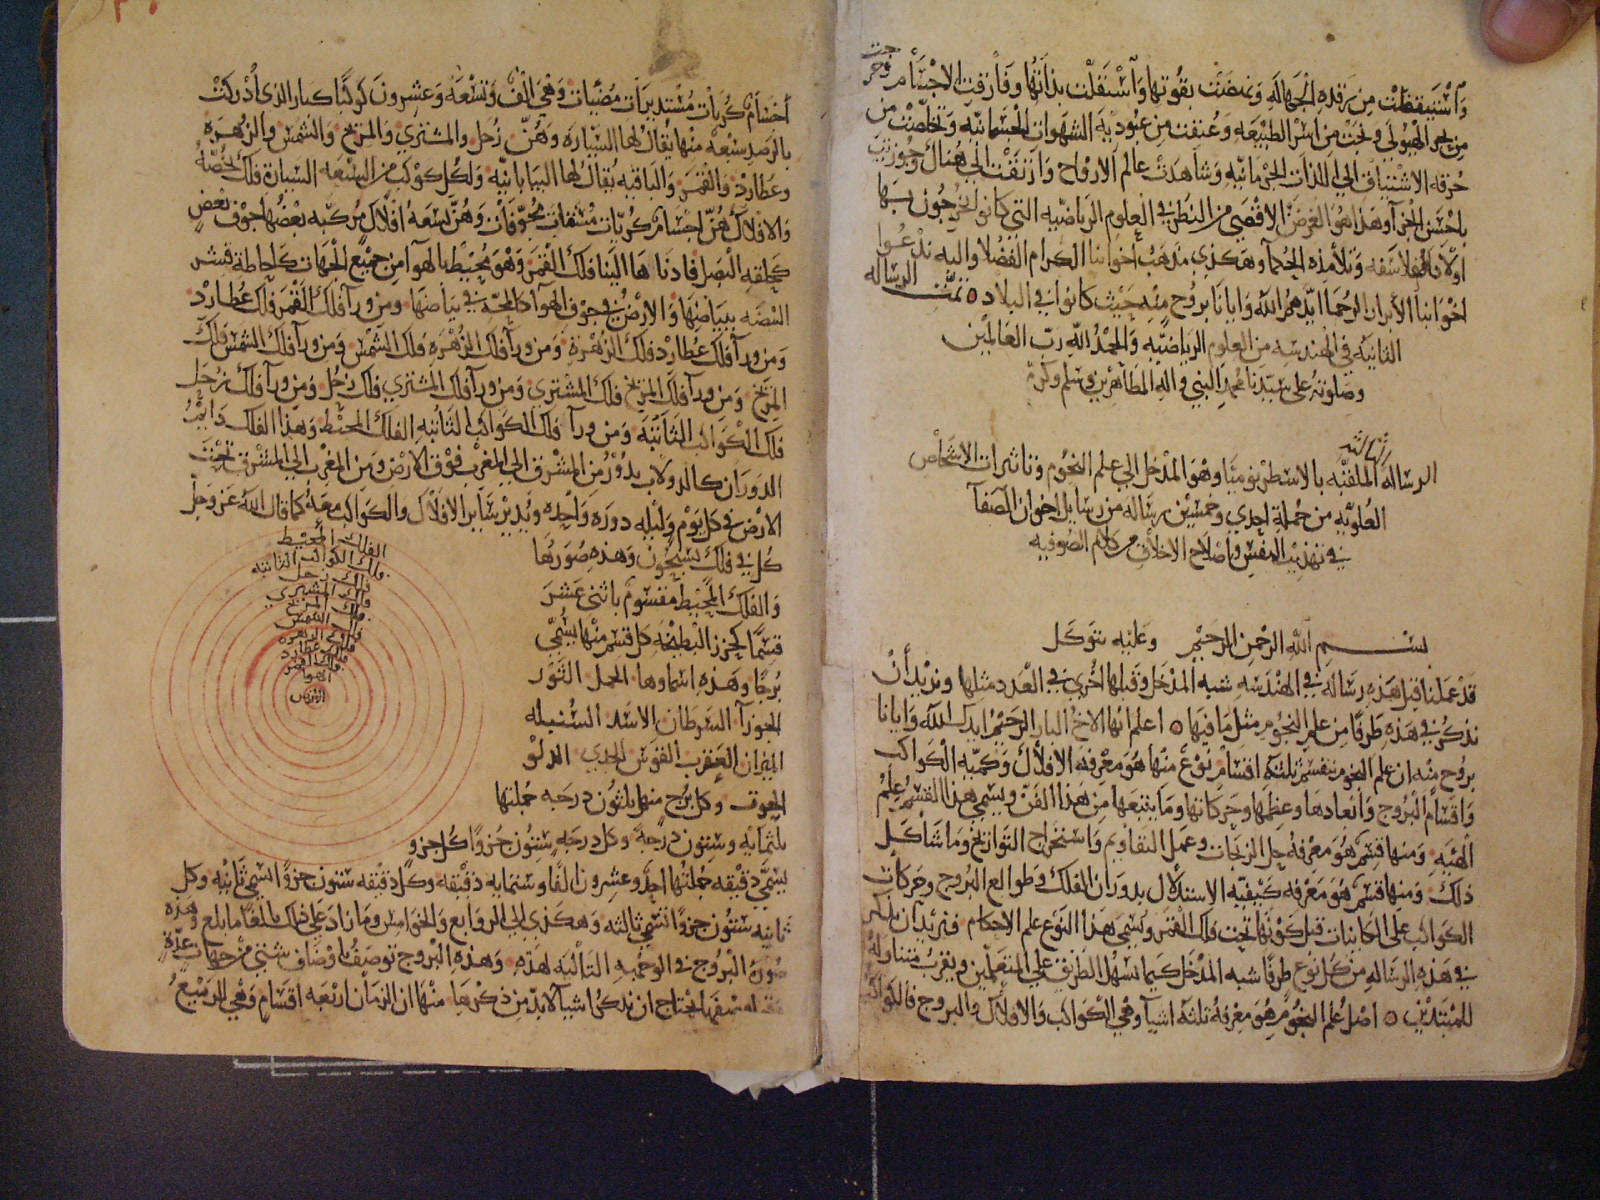 واستيقظت من رقدة الجهالة ونهضت بقوتها واستقلت بذاتها وفارقت الاجسام وخرجت
من بحر الهيولى ونجت من اسر الطبيعه وعتقت من عبوديه الشهوات الجسمانيه وتخلصت من
حرقة الاشتياق الى اللذات الجرمانيه وشاهدت عالم الارواح وارتقت الى هناك وجوزيت
باحسن الجزآ وهذا هو الغرض الاقصى من النظر في العلوم الرياضيه التي كانوا يخرجون بها
اولاد الفلاسفه وتلامذه الحكمآ وهكذى مذهب اخواننا الكرام الفضلا واليه ندعوا
اخواننا الابرار الرحما ايدهم الله وايانا بروح منه حيث كانوا في البلاد ٥ تمت الرساله
الثانيه في الهندسه من العلوم الرياضيه والحمد لله رب العالمين
وصلوته على سيدنا محمد النبي واله الطاهرين وسلم وكرم
الرساله الثالثه الملقبه بالاسطرنوميا وهو المدخل الى علم النجوم وتاثيرات الاشخاص
العلويه من جملة احدى وخمسين رساله من رسايل اخوان الصفآ
في تهذيب النفس واصلاح الاخلاق من كلام الصوفيه
بسم الله الرحمن الرحيم وعليه نتوكل
قد عملنا قبل هذه رساله في الهندسه شبه المدخل وقبلها اخرى في العدد مثلها ونريد أن
نذكر في هذه طرفا من علم النجوم مثل ما فيها ٥ اعلم ايها الاخ البار الرحيم ايدك الله وايانا
بروح منه ان علم النجوم ينقسم ثلثة اقسام نوع منها هو معرفة الافلاك وكميه الكواكب
واقسام البروج وابعادها وعظمها وحركاتها وما يتبعها من هذا الفن ويسمى هذا القسم علم
الهيه ومنها قسم هو معرفة حل الزيجات وعمل التقاويم واستخراج التواريخ وما شاكل
ذلك ومنها قسم هو معرفة كيفيه الاستدلال بدوران الفلك وطوالع البروج وحركات
الكواكب على الكاينات قبل كونها تحت فلك القمر ويسمى هذا النوع علم الاحكام فنريد أن نذكر
في هذه الرساله من كل نوع طرفا شبه المدخل كيما يسهل الطريق على المتعلمين ويقرب متناوله
للمبتدين ٥ اصل علم النجوم هو معرفة ثلثة اشيآ وهي الكواكب والافلاك والبروج فالكواكب
أجسام كريات مستديرات مضيات وهي الف وتسعه وعشرون كوكبا كبارا الذي ادركت
بالرصد سبعه منها يقال لها السياره وهن زحل والمشتري والمريخ والشمس والزهره
وعطارد والقمر والباقيه يقال لها البيابانيه ولكل كوكب من السبعه السيارة فلك يخصه
والافلاك هن اجسام كريات مشفات مجوفات وهن تسعه افلاك مركبه بعضها جوف بعض
كحلقه البصل فادناها الينا فلك القمر وهو محيط بالهوآ من جميع الجهات كاحاطة قشر
البيضه ببياضها والارض في جوف الهوآ كالمحه في بياضها ومن ورآ فلك القمر فلك عطارد
ومن ورآ فلك عطارد فلك الزهرة ومن ورآ فلك الزهره فلك الشمس ومن ورآ فلك الشمس فلك
المريخ ومن ورآ فلك المريخ فلك المشتري ومن ورآ فلك المشتري فلك زحل ومن ورآ فلك زحل
فلك الكواكب الثابته ومن ورآ فلك الكواكب الثابته الفلك المحيط وهذا الفلك دايم
الدوران كالدولاب يدور من المشرق الى المغرب فوق الارض ومن المغرب الى المشرق تحت
الارض في كل يوم وليله دوره واحده ويدير ساير الافلاك والكواكب معه كما قال الله عز وجل
كل في فلك يسبحون وهذه صورتها
والفلك المحيط مقسوم باثنى عشر
قسما كجزز البطيخه كل قسم منها يسمى
برجا وهذه اسماوها الحمل الثور
الجوزآ السرطان الاسد السنبله
الميزان العقرب القوس الجدي الدلو
الحوت وكل برج منها ثلثون درجه جملتها
ثلثمايه وستون درجة وكل درجه ستون جزوا كل جزو
يسمى دقيقه جملتها احد وعشرون الفا وستمايه دقيقه وكل دقيقه ستون جزوا تسمى ثانيه وكل
ثانيه ستون جزوا تسمى ثالثه وهكذى الى الروابع والخوامس وما زاد على ذلك بالغا ما بلغ وهذه
صورة البروج في الوجهه التاليه لهذه وهذه البروج توصف باوصاف شتى من جهات عدة
نحتاج ان نذكر اشيآ لا بد من ذكرها منها ان الزمان اربعه اقسام وهي الربيع
الفلك المحيط
فلك الكواكب الثابته
فلك زحل
فلك المشتري
فلك المريخ
فلك الشمس
فلك الزهره
فلك عطارد
فلك القمر
الهوا
الارض